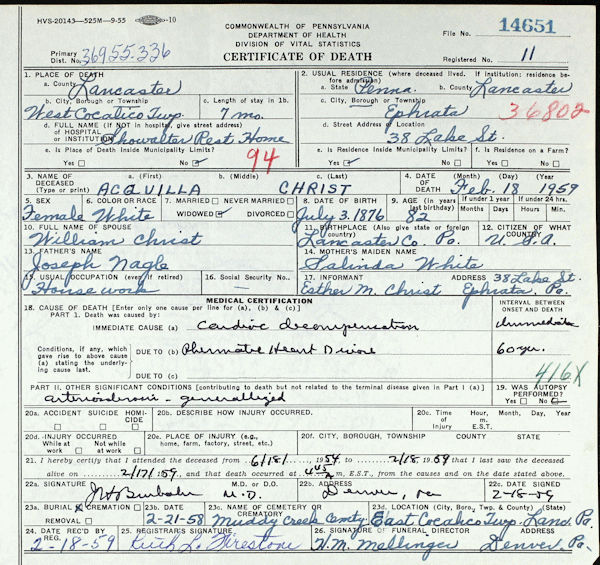 HVS-20143—525M—9-55 -10
COMMONWEALTH OF PENNSYLVANIA
DEPARTMENT OF HEALTH
DIVISION OF VITAL STATISTICS
CERTIFICATE OF DEATH
File No. 14651
Primary Dist. No. 36955.336
Registered No. 11
1. PLACE OF DEATH
a. County Lancaster
b. City, Borough or Township West Cocalico Twp. c. Length of stay in 1b. 7 mo.
d. FULL NAME (If NOT in hospital, give street address) OF HOSPITAL OR INSTITUTION Showalter Rest Home
e. Is Place of Death Inside Municipality Limits? Yes No 94
2. USUAL RESIDENCE (where deceased lived. If institution: residence before admission)
a. State Penna. b. County Lancaster
c. City, Borough or Township Ephrata 36802
d. Street Address or Location 38 Lake St.
e. Is Residence Inside Municipality Limits? Yes No f. Is Residence on a Farm? Yes No
3. NAME OF DECEASED (Type or print) a. (First) b. (Middle) c. (Last)
ACQUILLA CHRIST
4. DATE OF DEATH (Month) (Day) (Year) Feb. 18 1959
5. SEX Female 6. COLOR OR RACE White 7. MARRIED NEVER MARRIED WIDOWED DIVORCED
8. DATE OF BIRTH July 3, 1876 9. AGE (In years last birthday) 82 If under 1 year Months Days If under 24 hrs. Hours Min.
10. FULL NAME OF SPOUSE William Christ
11. BIRTHPLACE (Also give state or foreign country) Lancaster Co. Pa. 12. CITIZEN OF WHAT COUNTRY? U.S.A.
13. FATHER'S NAME Joseph Nagle
14. MOTHER'S MAIDEN NAME Falinda White
15. USUAL OCCUPATION (even if retired) Housework 16. Social Security No.
17. INFORMANT Esther M. Christ ADDRESS 38 Lake St. Ephrata, Pa.
MEDICAL CERTIFICATION
18. CAUSE OF DEATH [Enter only one cause per line for (a), (b) & (c)]
PART 1. Death was caused by:
INTERVAL BETWEEN ONSET AND DEATH
IMMEDIATE CAUSE (a) Cardiac decompensation Immediate
Conditions, if any, which gave rise to above cause (a) stating the underlying cause last.
DUE TO (b) Rheumatic Heart Disease 60 yr.
DUE TO (c) 416X
PART II. OTHER SIGNIFICANT CONDITIONS [contributing to death but not related to the terminal disease given in Part 1 (a)]
arteriosclerosis - generalized
19. WAS AUTOPSY PERFORMED? Yes No
20a. ACCIDENT SUICIDE HOMICIDE
20b. DESCRIBE HOW INJURY OCCURRED.
20c. Time of Injury Hour, m. E.S.T. Month, Day, Year
20d. INJURY OCCURRED While at work Not while at work
20e. PLACE OF INJURY (e.g., home, farm, factory, street, etc.)
20f. CITY, BOROUGH, TOWNSHIP COUNTY STATE
21. I hereby certify that I attended the deceased from 6/18/, 1954 to 2/18, 1959 that I last saw the deceased
alive on 2/17/59, and that death occurred at 4:45 m, E.S.T., from the causes and on the date stated above.
22a. SIGNATURE M.D. or D.O. M.D.
22b. ADDRESS Denver, Pa
22c. DATE SIGNED 2-18-59
23a. BURIAL CREMATION REMOVAL
23b. DATE 2-21-58
23c. NAME OF CEMETERY OR CREMATORY Muddy Creek Cemty
23d. LOCATION (City, Boro, Twp. & County) (State) East Cocalico Twp. Lanc. Pa.
24. DATE REC'D BY REG. 2-18-59
25. REGISTRAR'S SIGNATURE Ruth L. Firestone
26. SIGNATURE OF FUNERAL DIRECTOR H.M. Mellinger ADDRESS Denver, Pa.